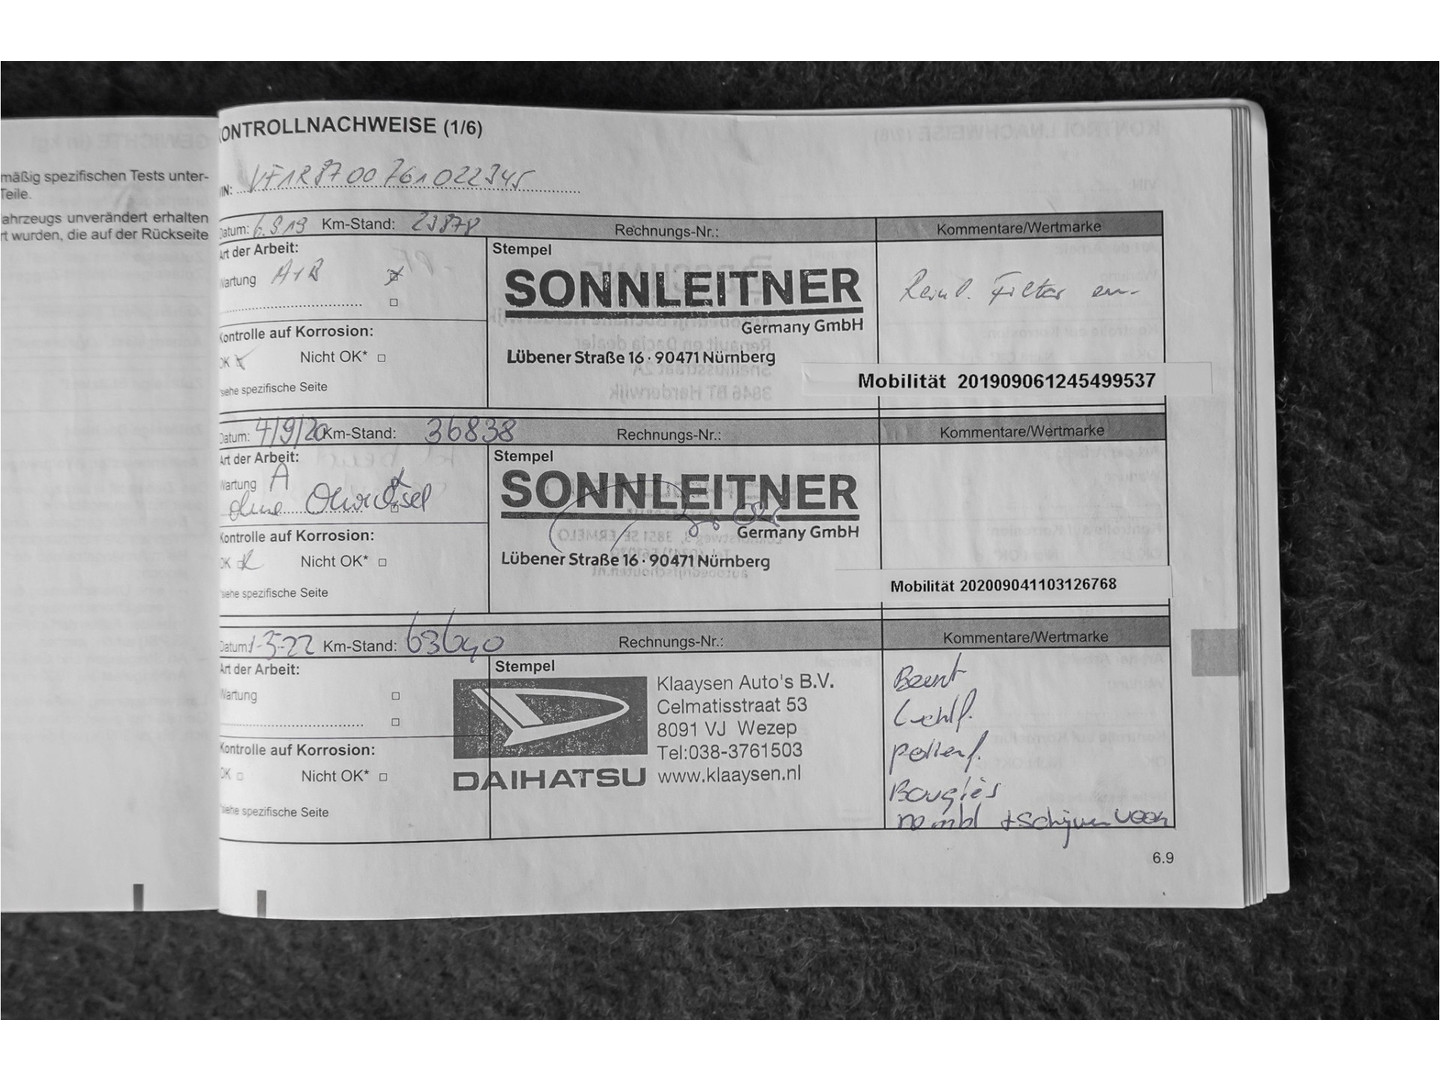 mäßig spezifischen Tests unter-
Teile.
ahrzeugs unverändert erhalten
rt wurden, die auf der Rückseite
ONTROLLNACHWEISE (1/6)
IN: VF1R8700761022345
atum: 6.9.19 Km-Stand: 23878 Rechnungs-Nr.: Kommentare/Wertmarke
Art der Arbeit: Stempel
Wartung A+B
SONNLEITNER
Germany GmbH
Lübener Straße 16 · 90471 Nürnberg
Filter
Kontrolle auf Korrosion:
OK Nicht OK*
siehe spezifische Seite
Mobilität 201909061245499537
Datum: 4/9/20 Km-Stand: 36838 Rechnungs-Nr.: Kommentare/Wertmarke
Art der Arbeit: Stempel
Wartung A
ohne Ölwechsel
SONNLEITNER
Germany GmbH
Lübener Straße 16 · 90471 Nürnberg
Kontrolle auf Korrosion:
OK Nicht OK*
siehe spezifische Seite
Mobilität 202009041103126768
Datum: 1-3-22 Km-Stand: 63640 Rechnungs-Nr.: Kommentare/Wertmarke
Art der Arbeit: Stempel
Wartung
Kontrolle auf Korrosion:
OK Nicht OK*
siehe spezifische Seite
DAIHATSU
Klaaysen Auto's B.V.
Celmatisstraat 53
8091 VJ Wezep
Tel:038-3761503
www.klaaysen.nl
Beurt
Luchtf.
pollenf.
Bougies
rembl + schijven voor
6.9